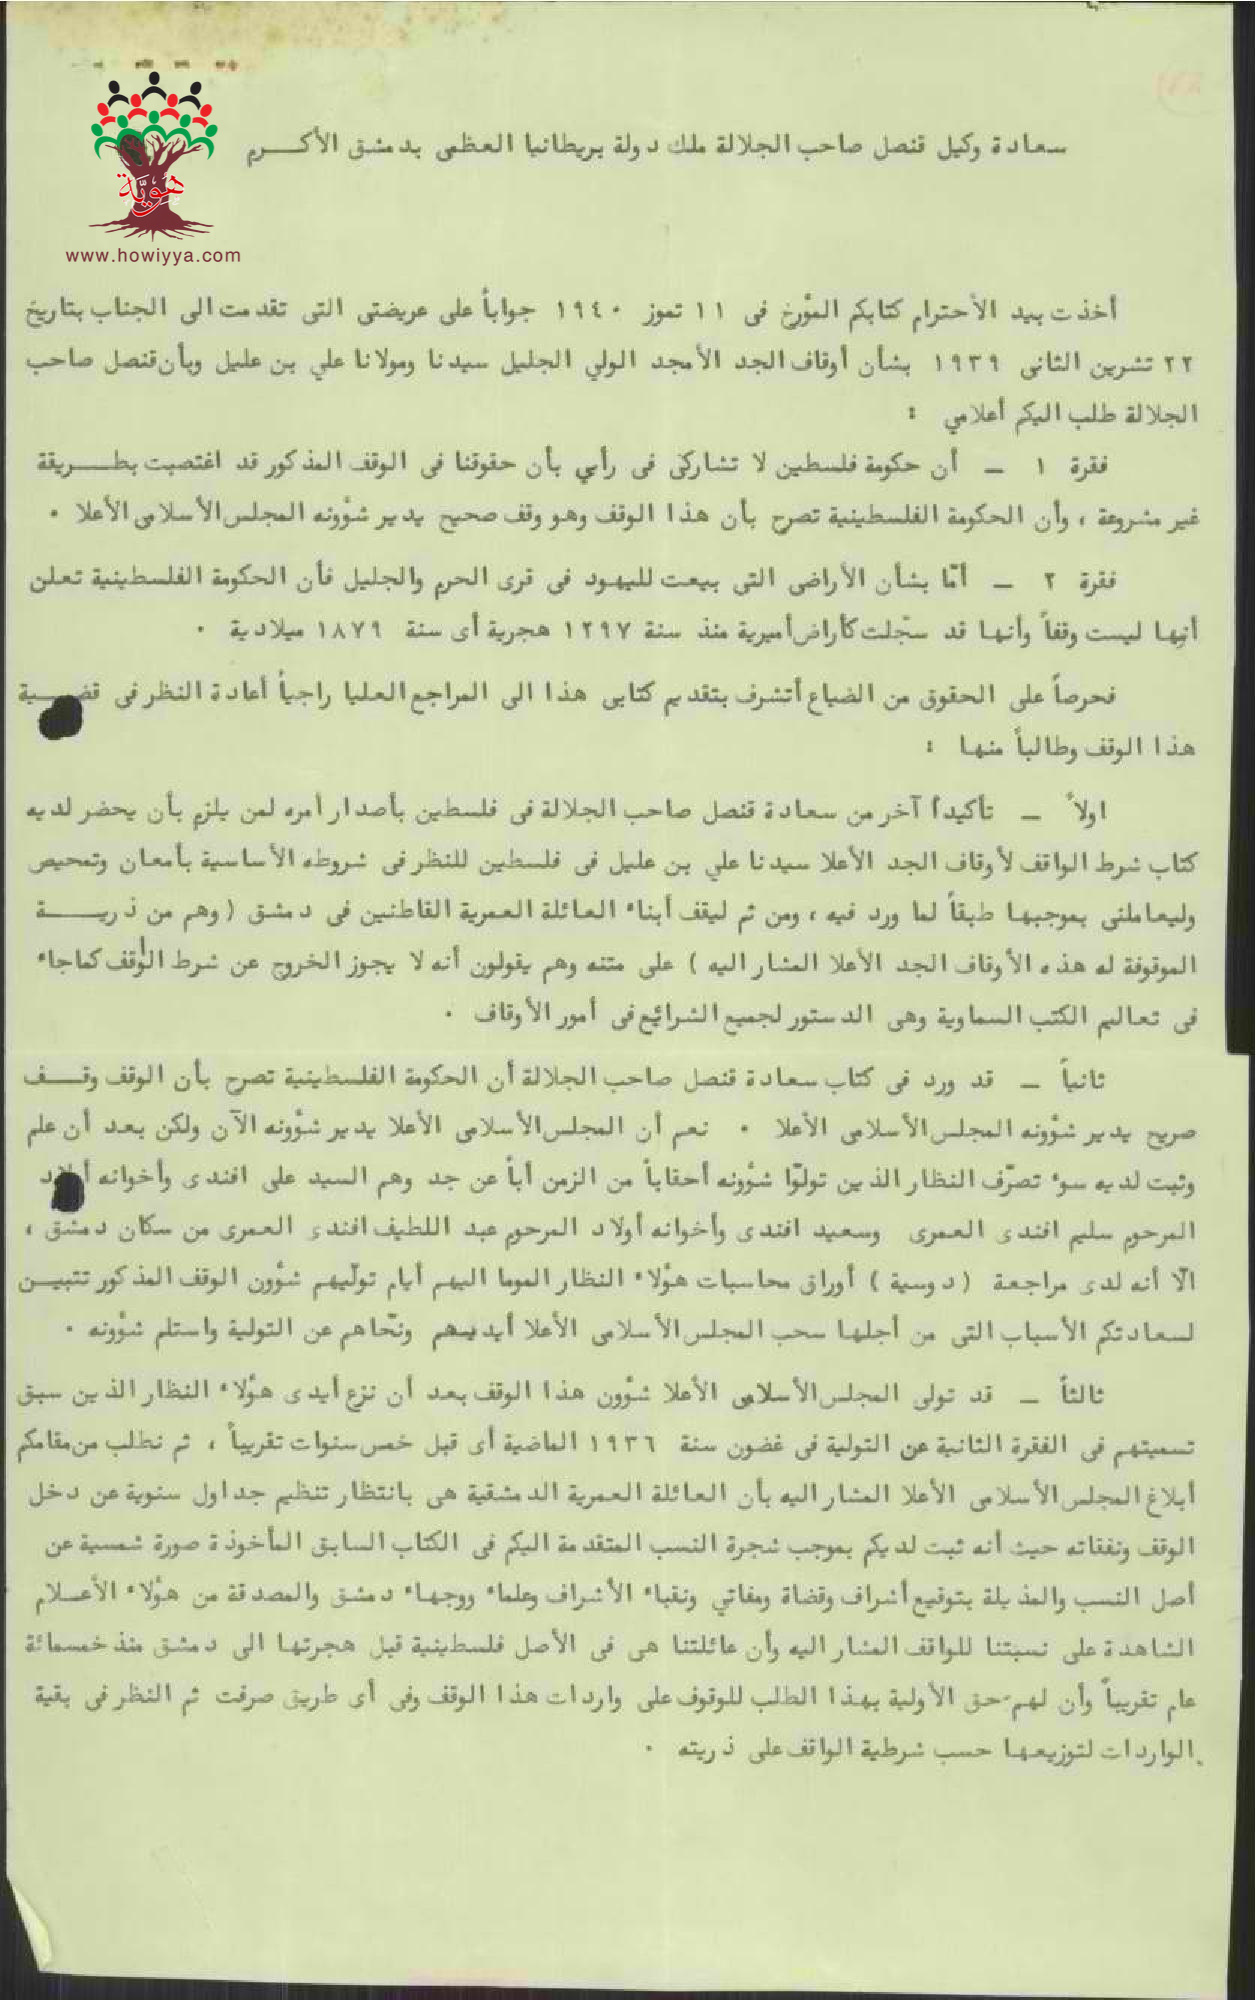 هويّة
www.howiyya.com
سعادة وكيل قنصل صاحب الجلالة ملك دولة بريطانيا العظمى بدمشق الأكـــرم
أخذت بيد الأحترام كتابكم المؤرخ فى ١١ تموز ١٩٤٠ جواباً على عريضتى التى تقدمت الى الجناب بتاريخ
٢٢ تشرين الثانى ١٩٣٩ بشأن أوقاف الجد الأمجد الولي الجليل سيدنا ومولانا علي بن عليل وبأن قنصل صاحب
الجلالة طلب اليكم أعلامي :
فقرة ١ ــ أن حكومة فلسطين لا تشاركنى فى رأيي بأن حقوقنا فى الوقف المذكور قد اغتصبت بطـــريقة
غير مشروعة ، وأن الحكومة الفلسطينية تصرح بأن هذا الوقف وهو وقف صحيح يدير شؤونه المجلس الأسلامى الأعلا ٠
فقرة ٢ ــ أمّا بشأن الأراضى التى بيعت لليهود فى قرى الحرم والجليل فأن الحكومة الفلسطينية تعلن
أنها ليست وقفاً وأنها قد سجّلت كأراض أميرية منذ سنة ١٢٩٧ هجرية أى سنة ١٨٧٩ ميلادية ٠
فحرصاً على الحقوق من الضياع أتشرف بتقديم كتابى هذا الى المراجع العليا راجياً أعادة النظر فى قضـــية
هذا الوقف وطالباً منها :
اولاً ــ تأكيداً آخر من سعادة قنصل صاحب الجلالة فى فلسطين بأصدار أمره لمن يلزم بأن يحضر لديه
كتاب شرط الواقف لأوقاف الجد الأعلا سيدنا علي بن عليل فى فلسطين للنظر فى شروطه الأساسية بأمعان وتمحيص
وليعاملنى بموجبها طبقاً لما ورد فيه ، ومن ثم ليقف أبناء العائلة العمرية القاطنين فى دمشق ( وهم من ذريـــة
الموقوفة له هذه الأوقاف الجد الأعلا المشار اليه ) على متنه وهم يقولون أنه لا يجوز الخروج عن شرط الواقف كما جاء
فى تعاليم الكتب السماوية وهى الدستور لجميع الشرائع فى أمور الأوقاف ٠
ثانياً ــ قد ورد فى كتاب سعادة قنصل صاحب الجلالة أن الحكومة الفلسطينية تصرح بأن الوقف وقــف
صريح يدير شؤونه المجلس الأسلامى الأعلا ٠ نعم أن المجلس الأسلامى الأعلا يدير شؤونه الآن ولكن بعد أن علم
وثبت لديه سوء تصرّف النظار الذين تولوّا شؤونه أحقاباً من الزمن أباً عن جد وهم السيد على افندى وأخوانه أولاد
المرحوم سليم افندى العمرى وسعيد افندى وأخوانه أولاد المرحوم عبد اللطيف افندى العمرى من سكان دمشق ،
الّا أنه لدى مراجعة ( دوسية ) أوراق محاسبات هؤلاء النظار الموما اليهم أيام تولّيهم شؤون الوقف المذكور تتبيـن
لسعادتكم الأسباب التى من أجلها سحب المجلس الأسلامى الأعلا أيديهم ونحّاهم عن التولية واستلم شؤونه ٠
ثالثاً ــ قد تولى المجلس الأسلامى الأعلا شؤون هذا الوقف بعد أن نزع أيدى هؤلاء النظار الذين سبق
تسميتهم فى الفقرة الثانية عن التولية فى غضون سنة ١٩٣٦ الماضية أى قبل خمس سنوات تقريباً ، ثم نطلب من مقامكم
أبلاغ المجلس الأسلامى الأعلا المشار اليه بأن العائلة العمرية الدمشقية هى بانتظار تنظيم جداول سنوية عن دخل
الوقف ونفقاته حيث أنه ثبت لديكم بموجب شجرة النسب المتقدمة اليكم فى الكتاب السابق المأخوذة صورة شمسية عن
أصل النسب والمذيلة بتوقيع أشراف وقضاة ومفاتي ونقباء الأشراف وعلماء ووجهاء دمشق والمصدقة من هؤلاء الأعــلام
الشاهدة على نسبتنا للواقف المشار اليه وأن عائلتنا هى فى الأصل فلسطينية قبل هجرتها الى دمشق منذ خمسمائة
عام تقريباً وأن لهم حق الأولية بهذا الطلب للوقوف على واردات هذا الوقف وفى أى طريق صرفت ثم النظر فى بقية
الواردات لتوزيعها حسب شرطية الواقف على ذريته ٠